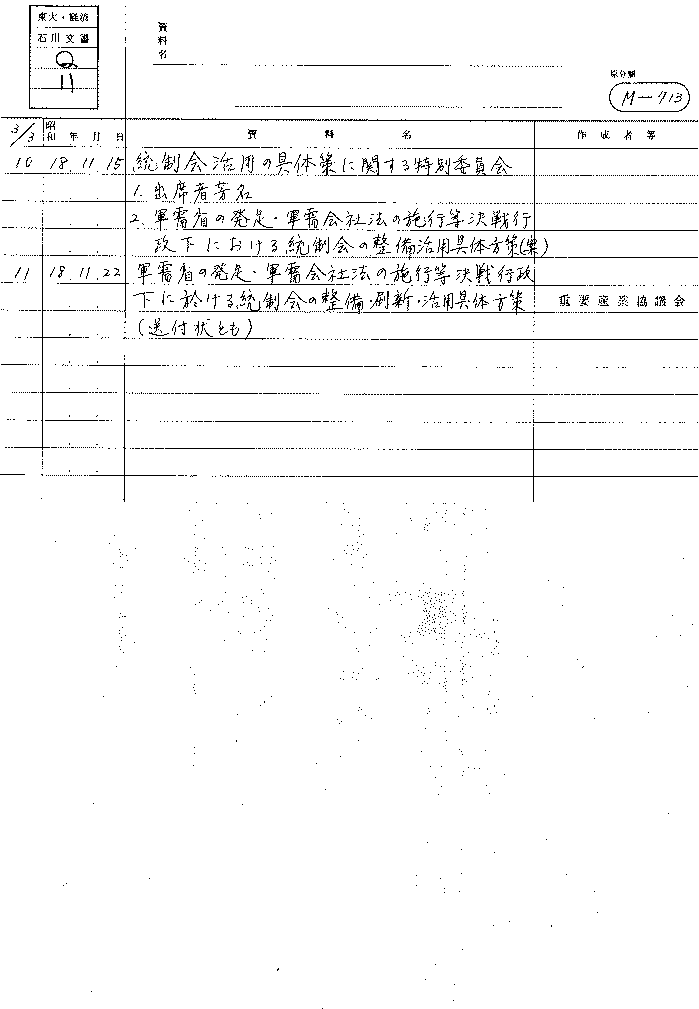 東大・経済
石川文書
Q
11
資料名
原分類
M-713
3/3 昭和 年 月 日 資料名 作成者等
10 18.11.15 統制会活用の具体策に関する特別委員会
1. 出席者芳名
2. 軍需省の発足・軍需会社法の施行等決戦行
政下における統制会の整備活用具体方策(案)
11 18.11.22 軍需省の発足・軍需会社法の施行等決戦行政
下に於ける統制会の整備・刷新・活用具体方策 重要産業協議会
(送付状とも)